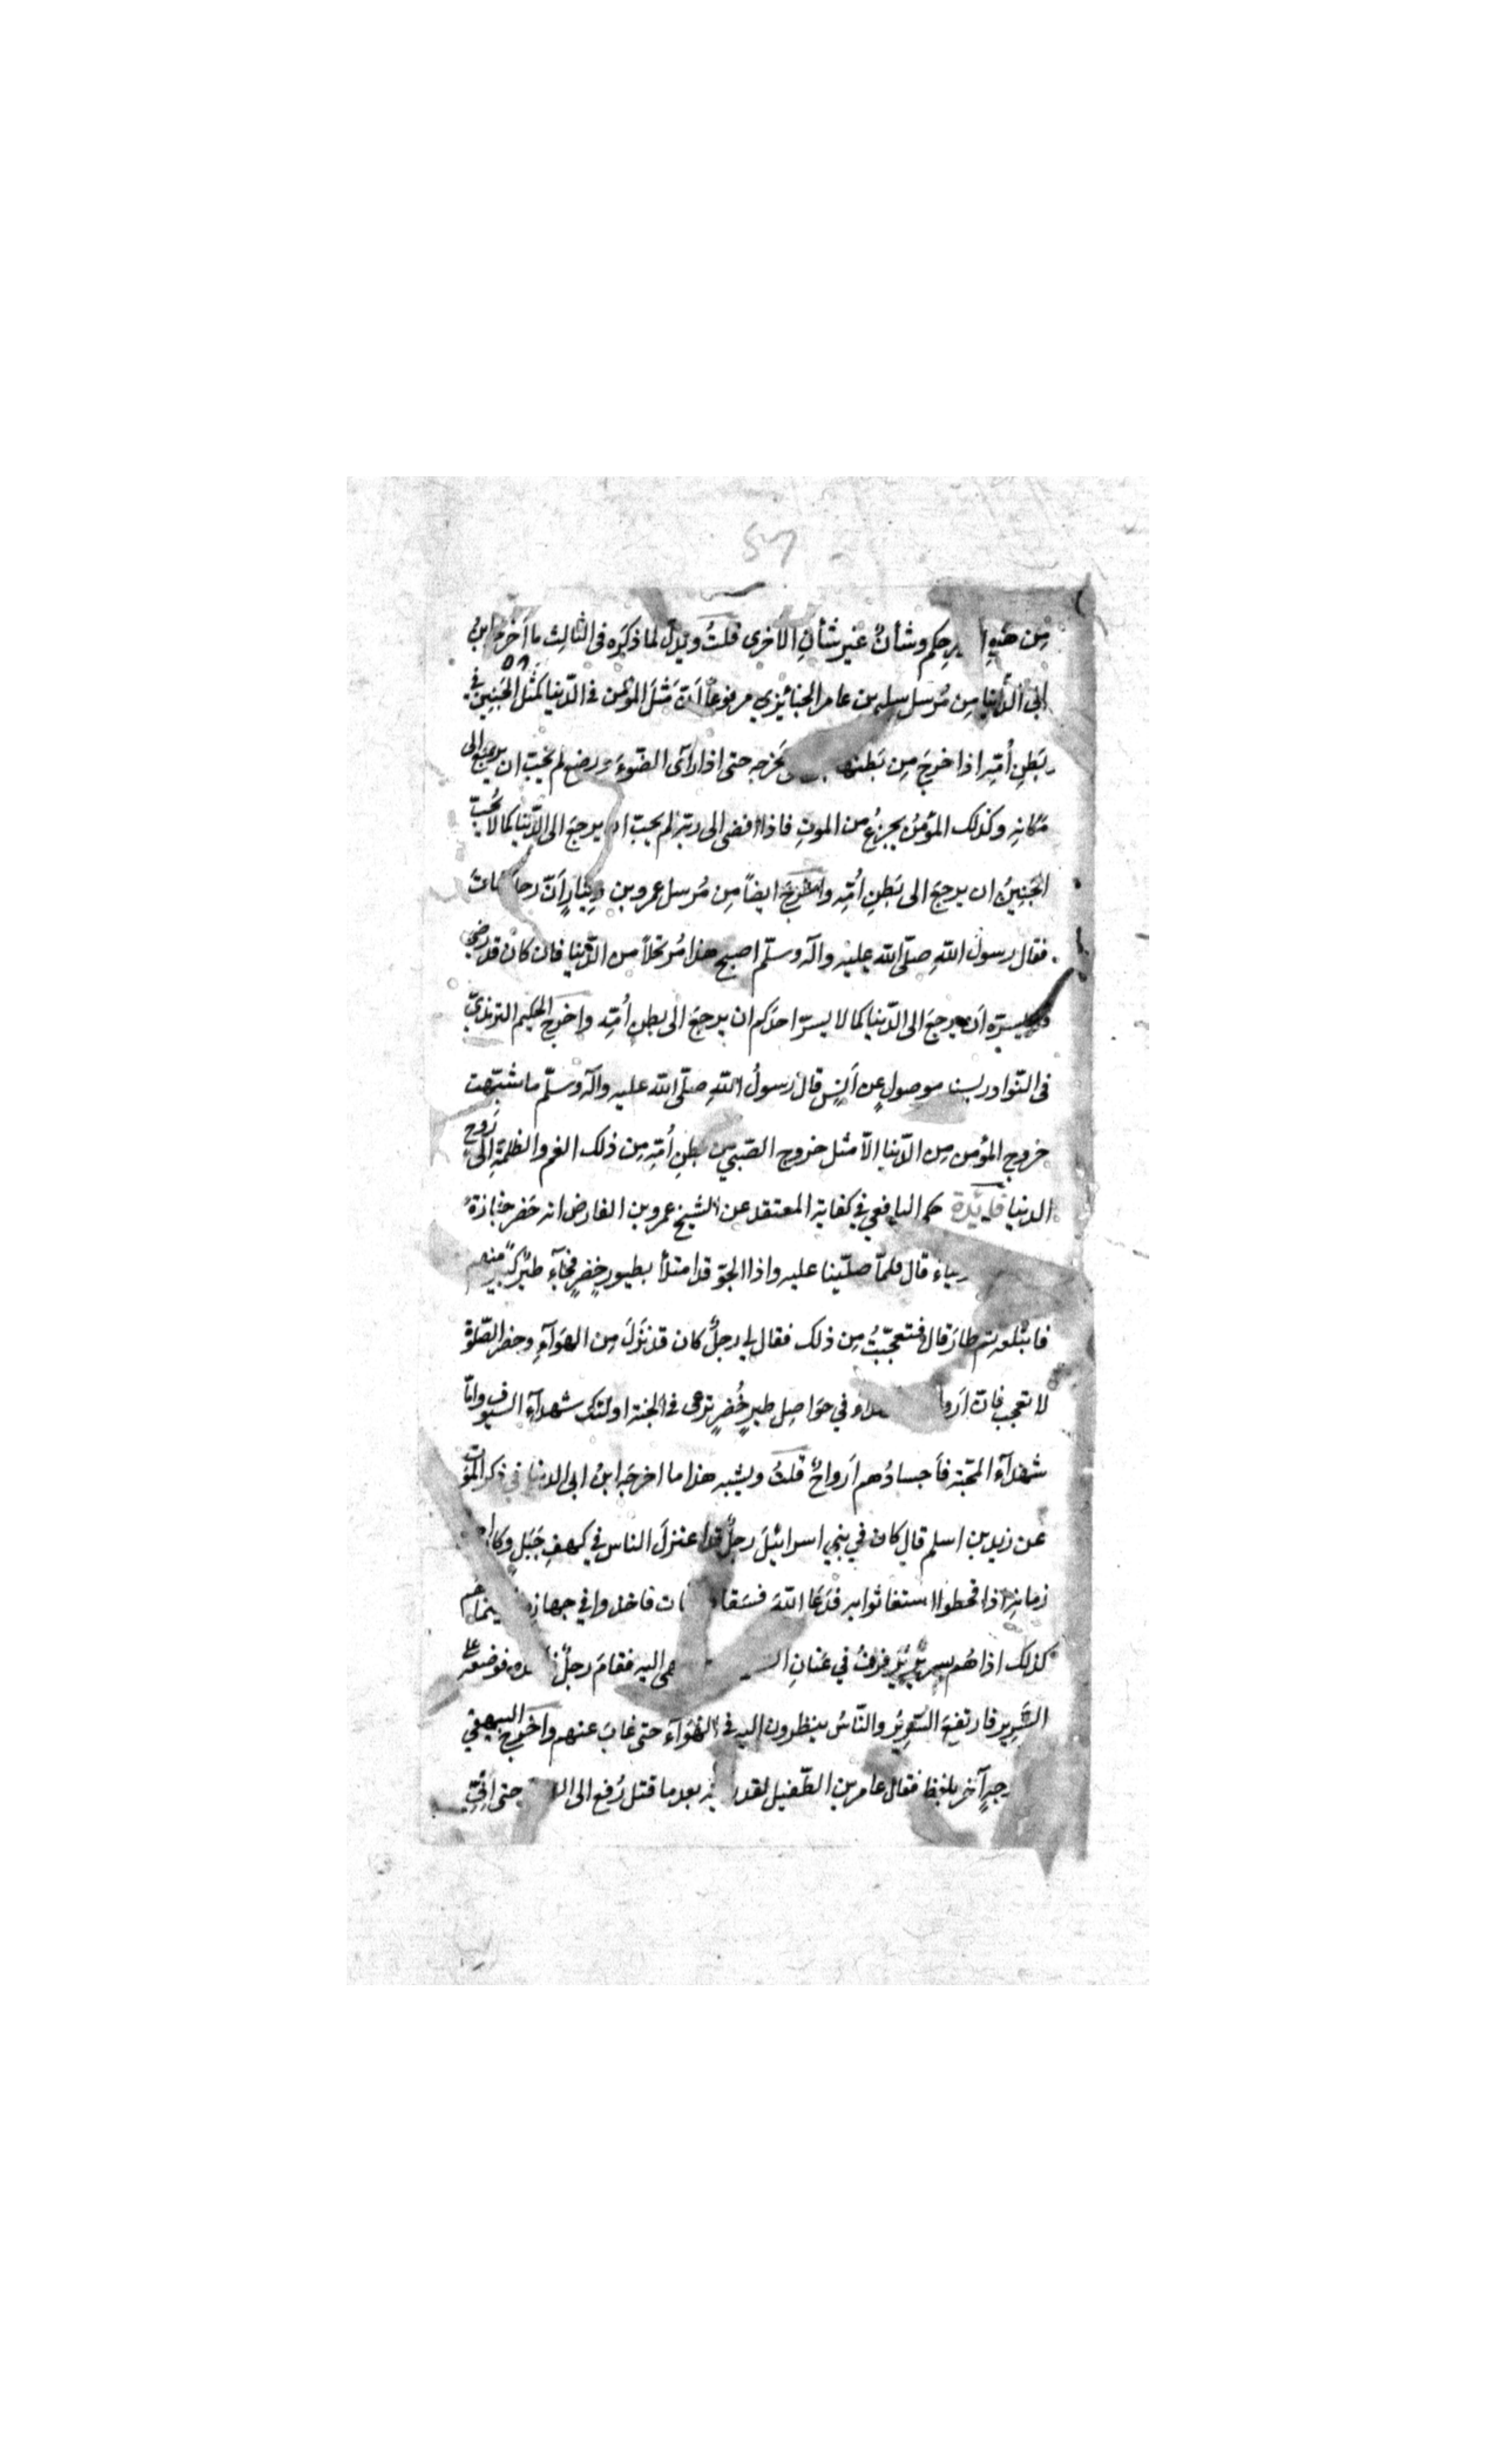 من هذه حكم وشأن غير شأن الاخرى قلت ويدل لما ذكره فى الثالث ما اخرج ابن
ابى الدنيا من مرسل سليم بن عامر الجنائزي مرفوعا ان مثل المؤمن فى الدنيا كمثل الجنين في
بطن امّه اذا خرج من بطنها مخرجه حتى اذا رآى الضّوءَ ورضع لم يحبّ ان يرجع الى
مكانه وكذلك المؤمن يجزعُ من الموتِ فاذا افضى الى ربّه لم يحبّ ان يرجع الى الدّنيا كما لا يُحبّ
الجَنِينُ ان يرجعَ الى بَطنِ اُمِّه واخرجَ ايضاً مِن مُرسل عمرو بن دِينارٍ اَنّ رجلا مات
فقال رسولُ اللهِ صلّى الله عليه وآله وسلّم اصبح هذا مُرتحلاً من الدّنيا فان كان قد رضي
فلا يسرّه اَن يرجعَ الى الدّنيا كما لا يسرّ احدَكم ان يرجعَ الى بطنِ اُمّه واخرج الحكيم الترمذيّ
فى النّوادر بسند موصولٍ عن اَنسٍ قال رسولُ اللهِ صلّى الله عليه وآله وسلّم ما شبّهت
خروج المؤمن مِن الدّنيا الاّ مثل خروج الصّبيّ من بطنِ اُمّه مِن ذلك الغم والظلمةِ اِلى رَوح
الدنيا فايدة حكى اليافعي في كفاية المعتقد عن الشيخ عمرو بن الفارض انه حَضر جنازةً
قال فلمّا صلّينا عليه واذا الجوّ قد امتلأ بطيورٍ خضرٍ فجآء طيرٌ كبيرٌ منهم
فابتلعه ثم طارَ قال فتعجّبتُ مِن ذلك فقال لي رجلٌ كان قد نزَلَ مِن الهوآءِ وحضر الصّلوة
لا تعجب فانّ في حَواصِل طيرٍ خُضرٍ ترعى فى الجنة اولئك شهدآءُ السيوف وامّا
شهدآءُ المحّبة فاَجسادُهم اَرواحٌ قلتُ ويشبه هذا ما اخرجَه ابنُ ابى الدنيا في ذكر الموت
عن زيد بن اسلم قال كان في بني اسرائيلَ رجلٌ قد اعتزلَ الناس في كهفِ جَبَلٍ وكان
زمانِه اذا قحطوا استغاثوا به فدَعَا اللهَ فسقاهم فاخذوا في جهازه
كذلك اذا هُم بسريرٍ يُرفرفُ في عَنانِ اليه فقامَ رجلٌ فوضعَه على
السَّرِيرِ فارتفعَ السَّرِيرُ والنّاسُ ينظرون اليه فى الهَوَآءِ حتى غابَ عنهم واخرج البيهقي
آخر بلفظ فقال عامر بن الطّفيل لقد بعد ما قتل رُفِع الى حتى اِنّي